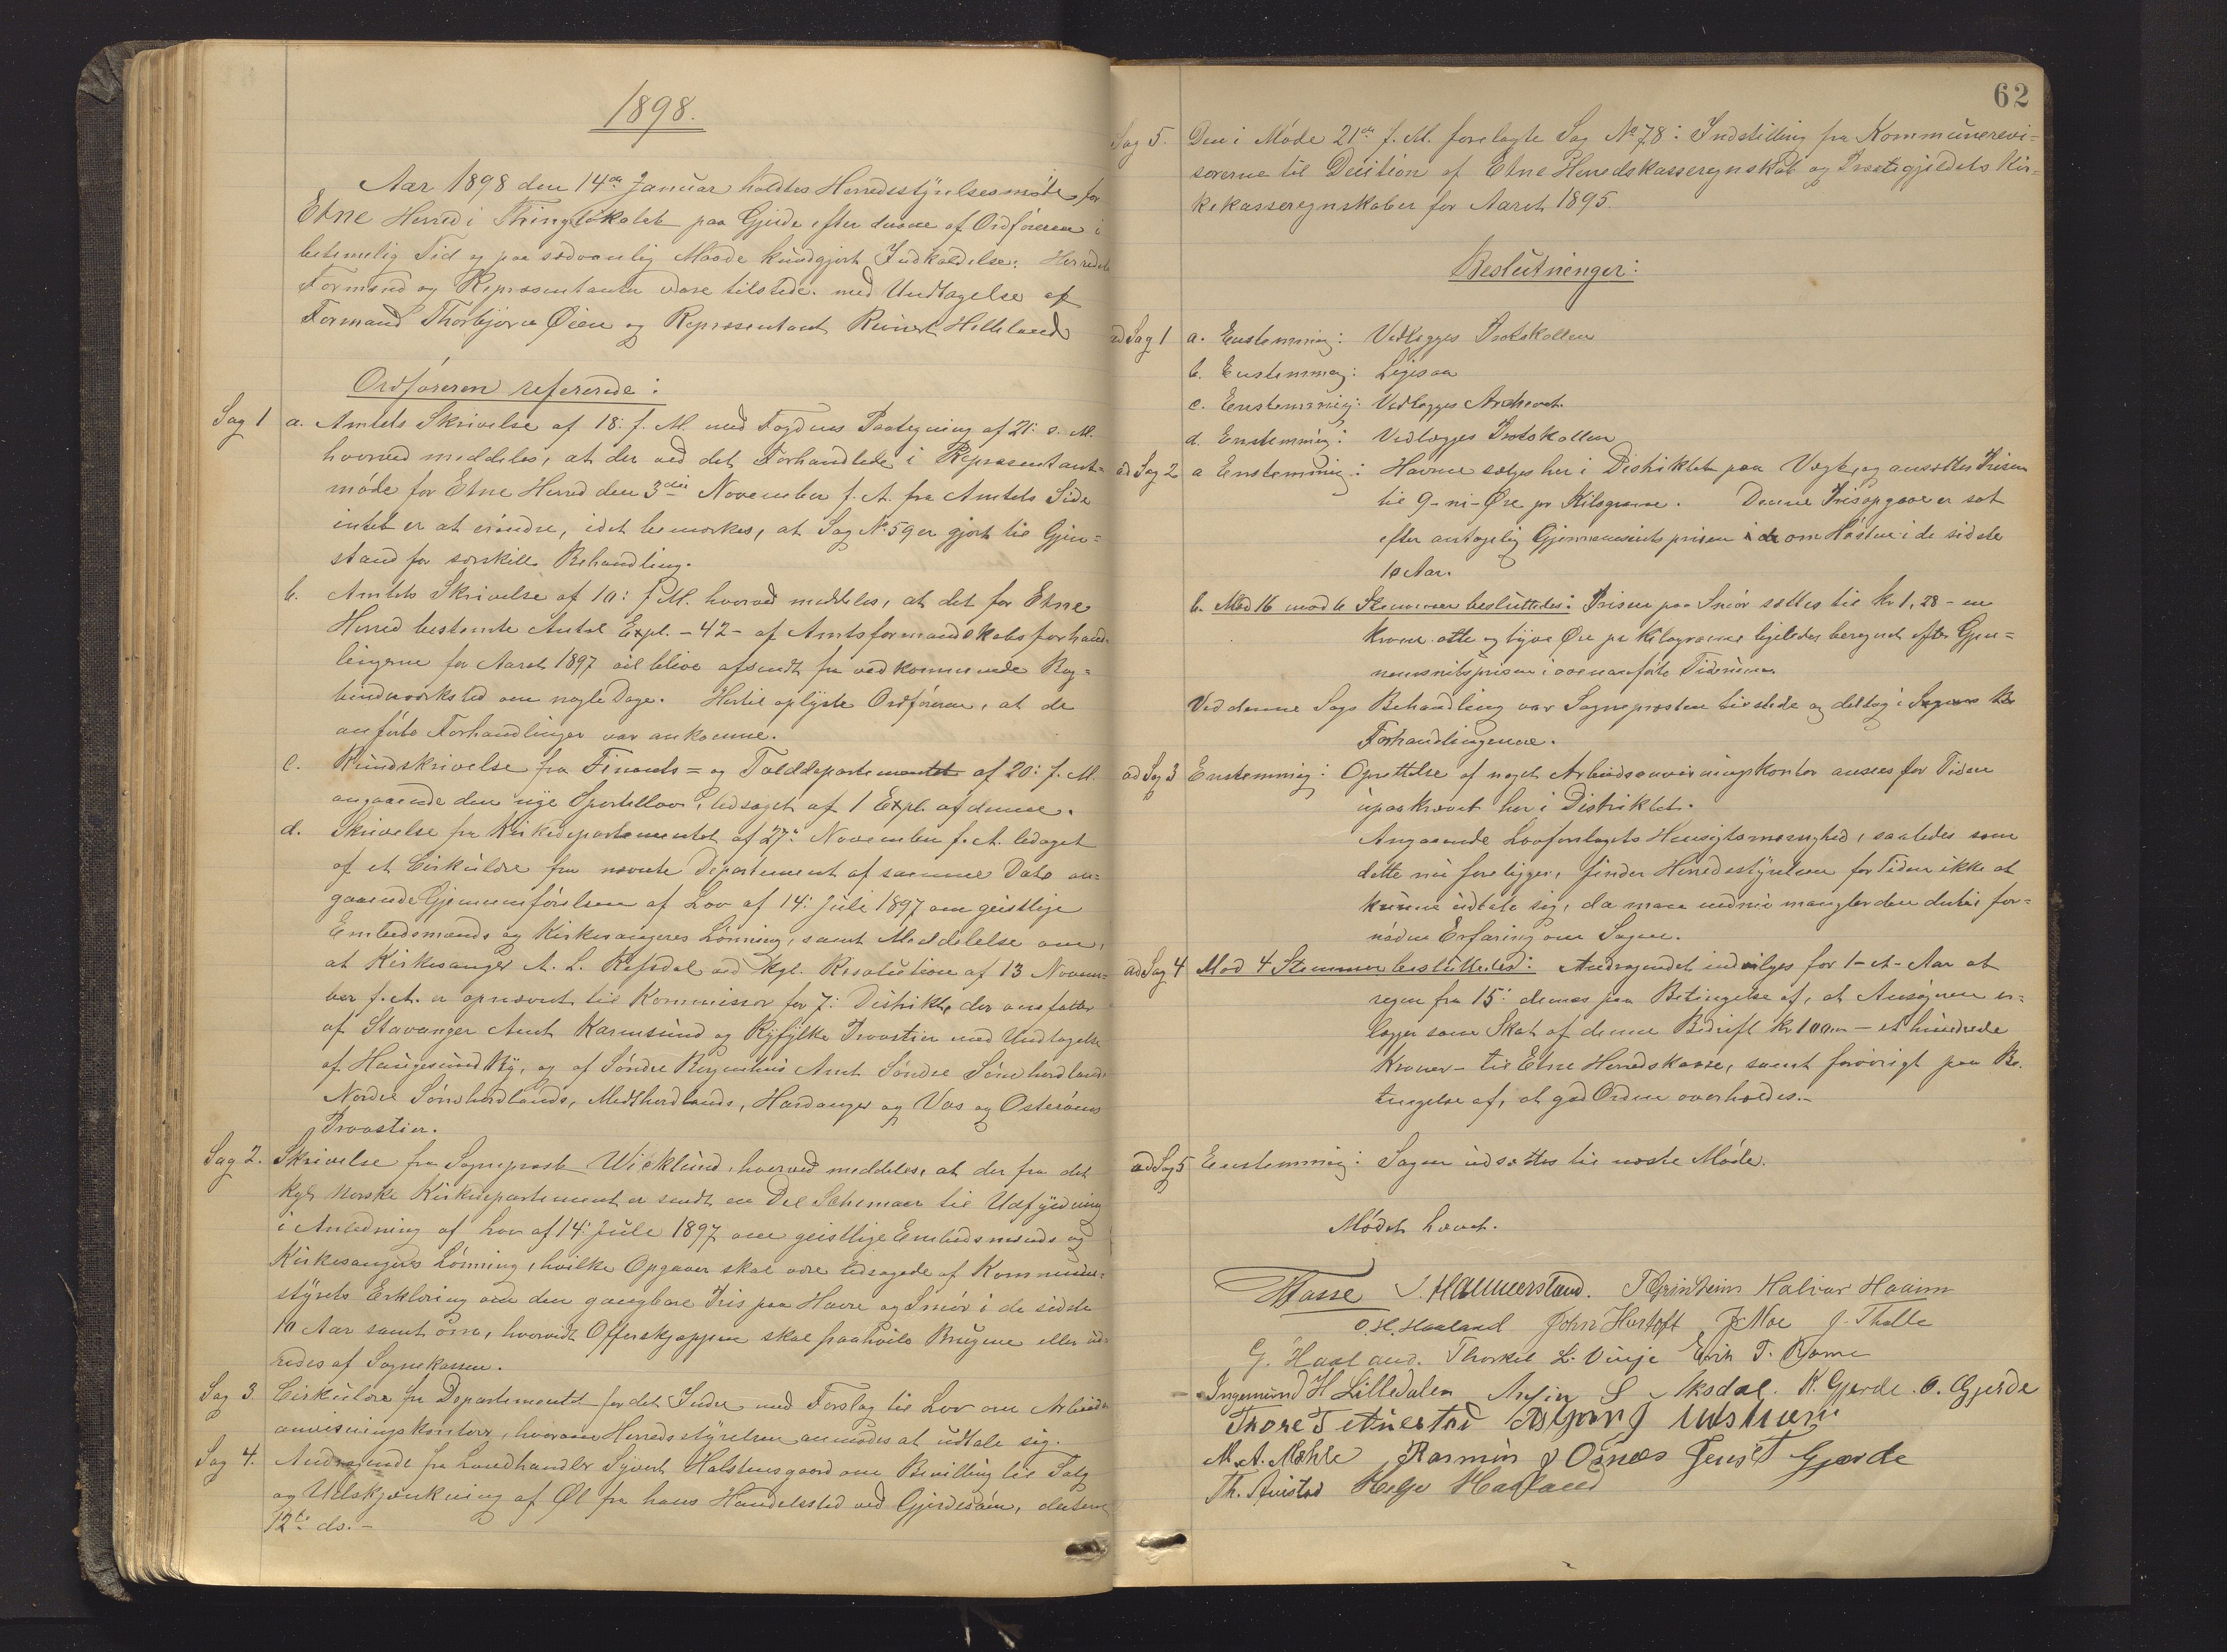 1898.
Aar 1898 den 14de Januar holdtes Herredsstyrelsesmøte for
Etne Herred i Thinglokalet paa Gjerde efter derom af Ordføreren i
betimelig Tid og paa sædvanlig Maade kundgjort Indkaldelse. Herredets
Formænd og Repræsentanter vare tilstede med Undtagelse af
Formand Thorbjørn Øien og Repræsentant Reinert Helleland
Ordføreren refererede:
Sag 1 a. Amtets Skrivelse af 18: f. M. med Fogdens Paategning af 21: s. M.
hvorved meddeles, at der ved det Forhandlede i Repræsentant=
møde for Etne Herred den 3die November f. A. fra Amtets Side
intet er at erindre, idet bemærkes, at Sag No 59 er gjort til Gjen=
stand for særskilt Behandling.
b. Amtets Skrivelse af 10: f. M. hvorved meddeles, at det for Etne
Herred bestemte Antal Expl. - 42 - af Amtsformandskabsforhand=
lingerne for Aaret 1897 vil blive afsendt fra vedkommende Bog=
binderværksted om nogle Dage. Hertil oplyste Ordføreren, at de
anførte Forhandlinger var ankomne.
c. Rundskrivelse fra Finants= og Tolddepartementet af 20: f. M.
angaaende den nye Sportellov, ledsaget af 1 Expl. af denne.
d. Skrivelse fra Kirkedepartementet af 27: November f. A. ledsaget
af et Cirkulære fra nævnte Departement af samme Dato an=
gaaende Gjennemførelsen af Lov af 14: Juli 1897 om geistlige
Embedsmænds og Kirkesangeres Lønning, samt Meddelelse om,
at Kirkesanger A. L. Refsdal ved kgl. Resolution af 13 Novem=
ber f. A. er opnævnt til Kommissær for 7: Distrikt, der omfatter
af Stavanger Amt Karmsund og Ryfylke Provstier med Undtagelse
af Haugesund By, og af Søndre Bergenhus Amt Søndre Søndhordlands
Nordre Søndhordlands, Midthordlands, Hardanger og Vos og Osterøens
Provstier.
Sag 2. Skrivelse fra Sogneprest Wicklund, hvorved meddeles, at der fra det
kgl. Norske Kirkedepartement er sendt en Del Schemaer til Udfyldning
i Anledning af Lov af 14: Juli 1897 om geistlige Embedsmænds og
Kirkesangeres Lønning, hvilke Opgaver skal være ledsagede af Kommune=
styrets Erklæring om den gangbare Pris paa Havre og Smør i de sidste
10 Aar samt om, hvorvidt Offerskjæppen skal paahvile Brugene eller ud=
redes af Sognekassen.
Sag 3. Cirkulære fra Departementet for det Indre med Forslag til Lov om Arbeids=
anvisningskontorer, hvorom Herredsstyrelsen anmodes at udtale sig.
Sag 4. Andragende fra Landhandler Syvert Halstensgaard om Bevilling til Salg
og Udskjænkning af Øl fra hans Handelssted ved Gjerdesøen, dateret
12te ds. -
62
Sag 5. Den i Møde 21de f. M. forelagte Sag No 78: Indstilling fra Kommunerevi=
sorerne til Decition af Etne Herredskasseregnskab og Præstegjeldets Kir=
kekasseregnskaber for Aaret 1895
Beslutninger:
ad Sag 1 a. Enstemmig: Vedlægges Protokollen
b. Enstemmig: Ligesaa
c. Enstemmig: Vedlægges Archivet.
d. Enstemmig: Vedlægges Protokollen
ad Sag 2 a Enstemmig: Havren sælges her i Distriktet paa Vægt, og ansættes Prisen
til 9 - ni - Øre pr Kilogram. Denne Prisopgave er sat
efter antagelig Gjennemsnitsprisen om Høsten i de sidste
10 Aar.
b. Med 16 mod 6 Stemmer besluttedes: Prisen paa Smør sættes til Kr 1,28 - en
Krone otte og tyve Øre pr Kilogram ligeledes beregnet efter Gjen=
nemsnitsprisen i ovenanførte Tidsrum.
Ved denne Sags Behandling var Sognepræsten tilstede og deltog i
Forhandlingerne.
ad Sag 3 Enstemmig: Oprettelse af noget Arbeidsanvisningskontor ansees for Tiden
upaakrævet her i Distriktet.
Angaaende Lovforslagets Hensigtsmæssighed, saaledes som
dette nu foreligger, finder Herredsstyrelsen for Tiden ikke at
kunne udtale sig, da man endnu mangler den dertil for=
nødne Erfaring om Sagen.
ad Sag 4 Mod 4 Stemmer besluttedes: Andragendet indvilges for 1 - et - Aar at
regne fra 15: dennes paa Betingelse af, at Ansøgeren er=
lægger som Skat af denne Bedrift Kr 100,00 - et hundrede
Kroner - til Etne Herredskasse, samt forøvrigt paa Be=
tingelse af, at god Orden overholdes. -
ad Sag 5 Enstemmig: Sagen udsættes til næste Møde.
Mødet hævet.
Hasse J. Hammersland. T Grindheim Halvar Haaim
O. H. Haaland John Hertoft J. Moe J. Tholle
G. Haaland. Thorkel L. Vinje Erik T. Rame
Ingemund H Lilledalen Arfin S Aksdal. K. Gjerde. O. Gjerde
Thore T Auestad Asbjørn J
M. A. Mæhle Rasmus J Osnæs Jens T Gjerde
Th. Auistad Helge Haaland